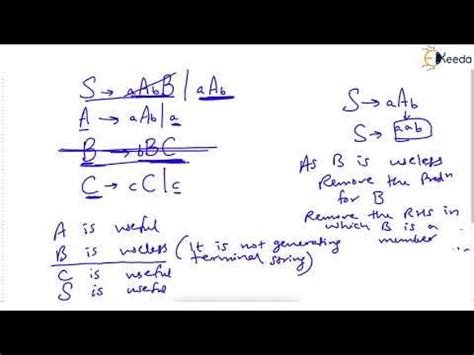 Keeda
S → aAbB | aAb
A → aAb | a
B → bBC
C → cC | c
A is useful
B is useless (It is not generating
terminal string)
C is useful
S is useful
S → aAb
S → aab
As B is useless
Remove the Prodn
for B
Remove the RHS in
which B is a
member